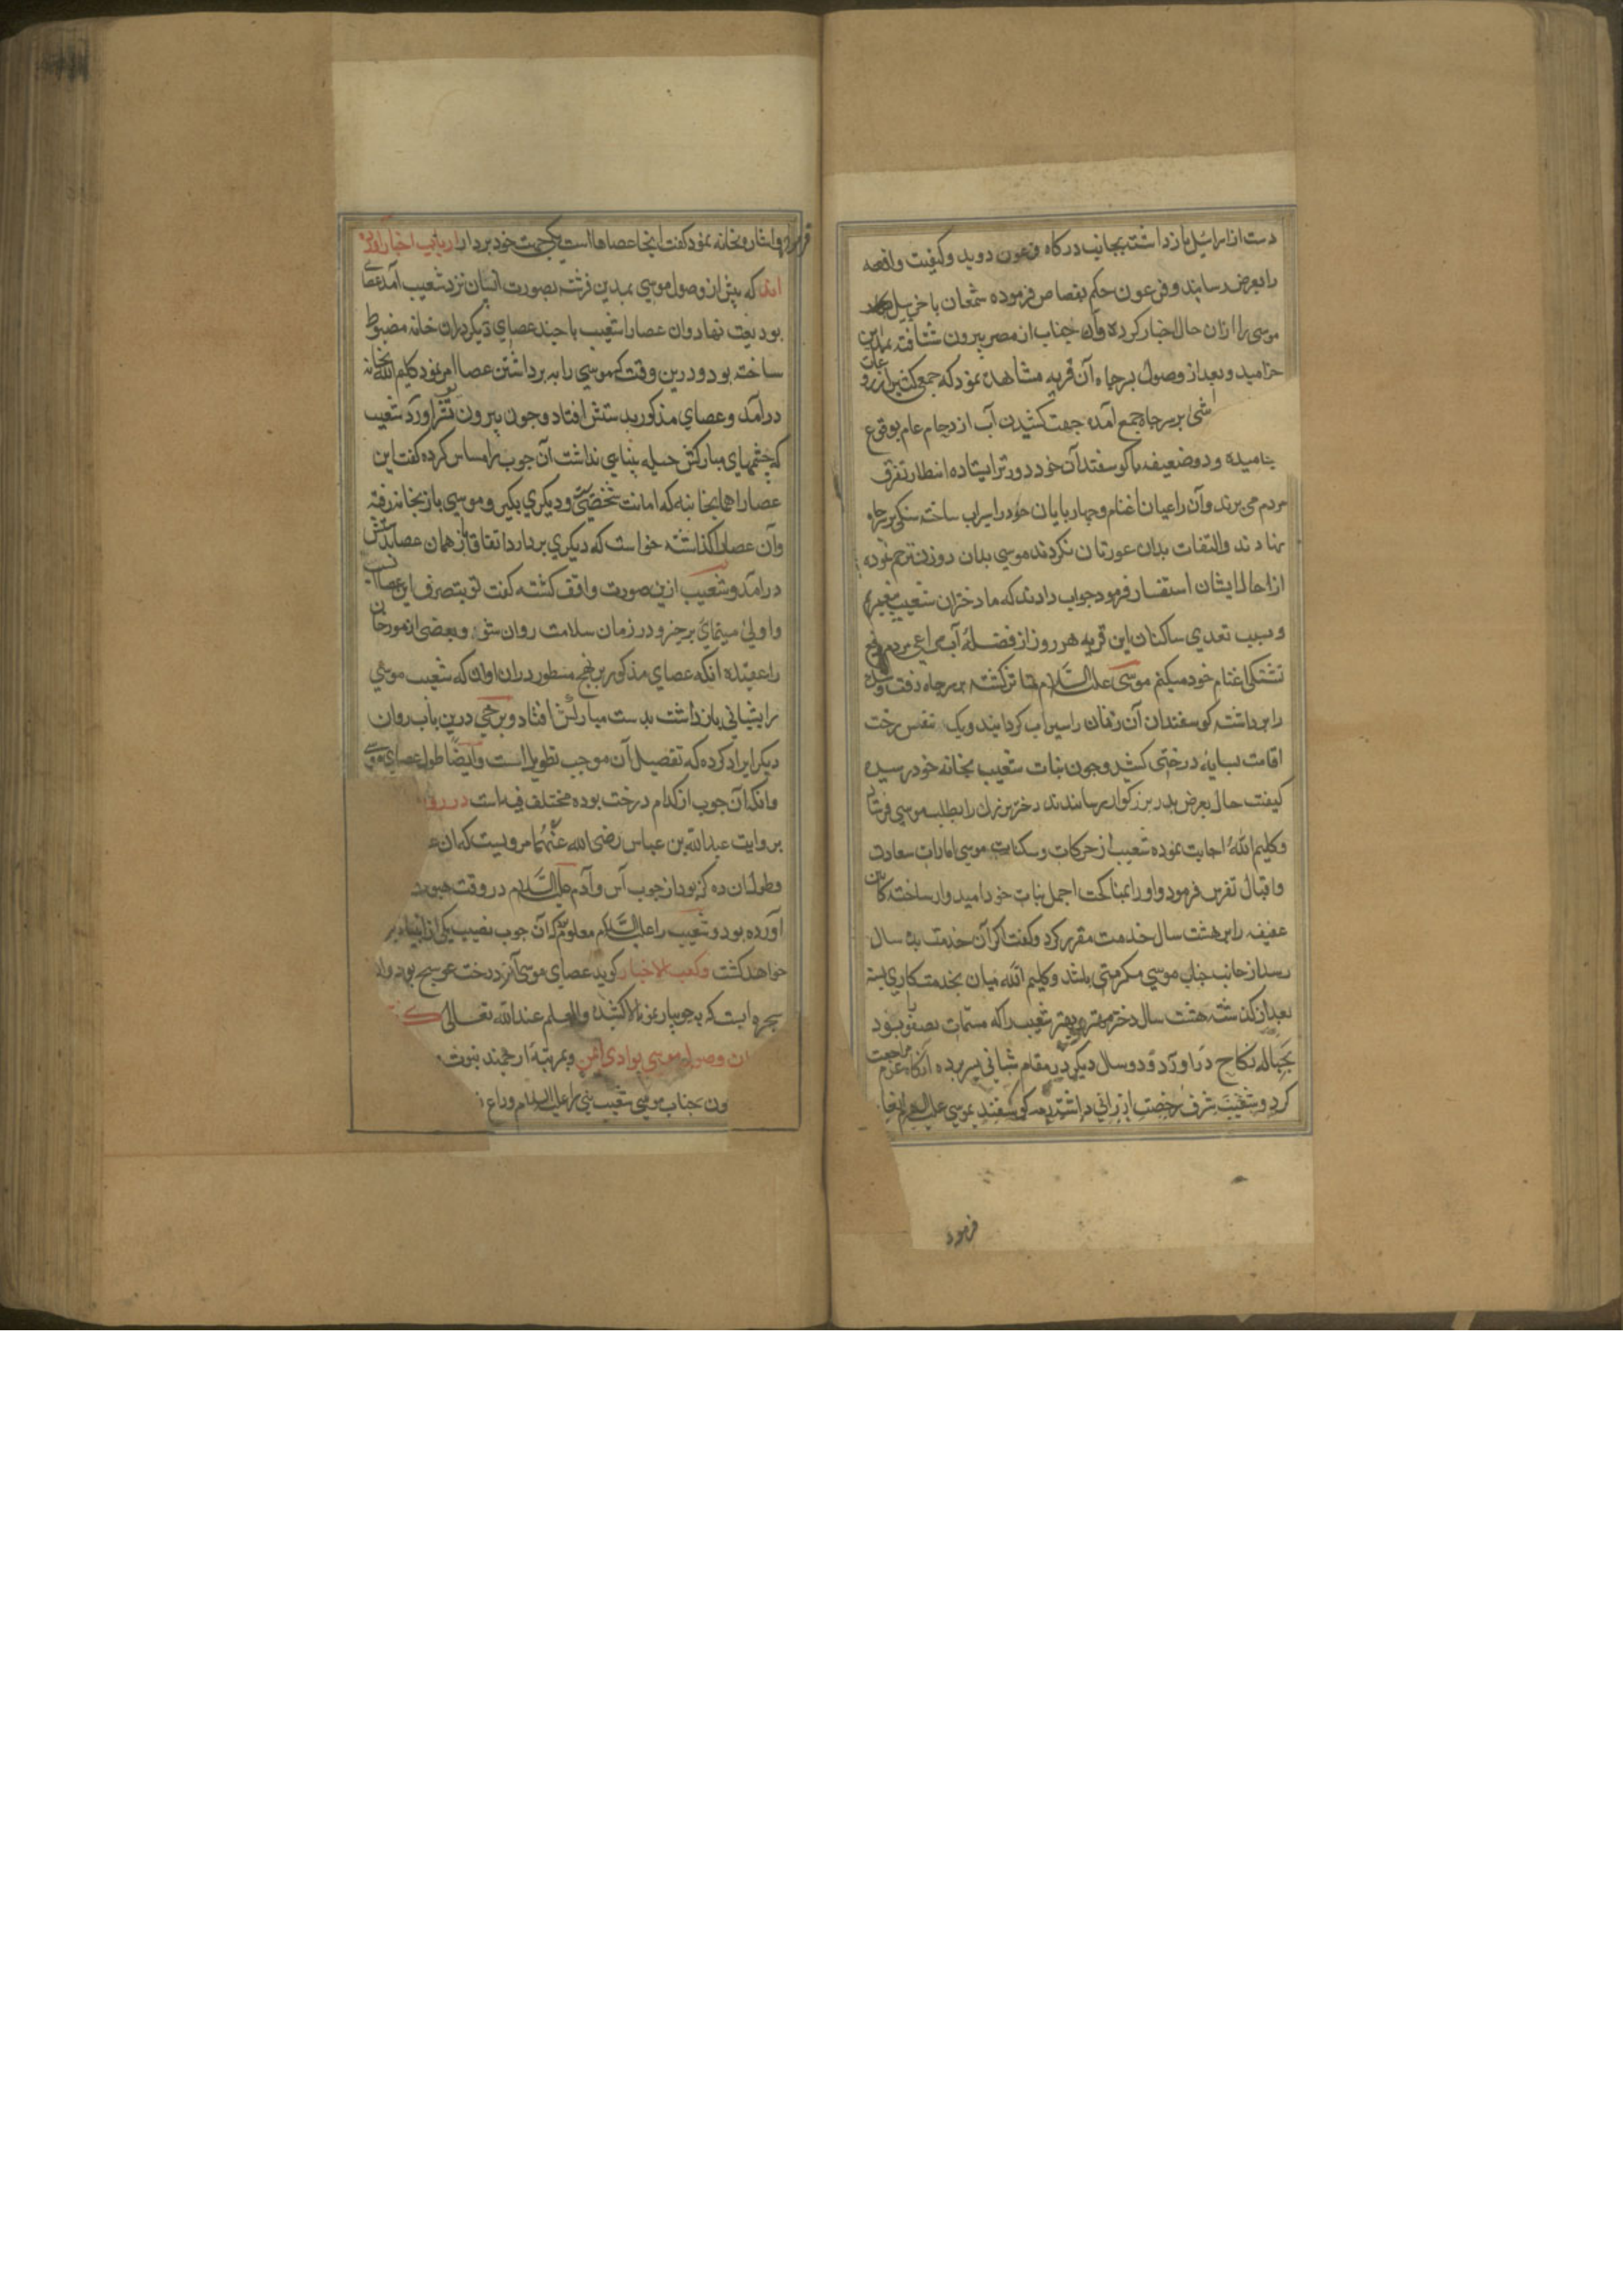 دست از اسرائیل بازداشته بجانب درکاه فرعون دوید و کیفیت واقعه
را بعرض رسانید و فرعون حکم بقصاص فرموده شمعان یا خربیل
موسی را ازان حال اخبار کرده و آن جناب از مصر بیرون شتافته بمدین
خرامید و بعد از وصول بر چاه آن قریه مشاهده نمود که جمعی کثیر از رعات
بر سر چاه جمع آمده جهت کشیدن آب ازدحام عام بوقوع
نامیده و دو ضعیفه با کوسفندان خود دورتر ایستاده انتظار تفرق
مردم می برند و آن راعیان اغنام و چهار پایان خود را سیراب ساخته سنکی بر چاه
نهادند و التفات بدان عورتان نکردند موسی بدان دو زن ترحم نموده
از احال ایشان استفسار فرمود جواب دادند که ما دختران شعیب پیغمبریم
و بسبب تعدی ساکنان این قریه هر روز از فضلهٔ آب مراعی مردم رفع
تشنکی اغنام خود میکنم موسی علیه السلام متاثر کشته بر سر چاه رفت و سنک
را برداشته کوسفندان آن زنان را سیراب کردانید و یک نفس رخت
اقامت بسایهٔ درختی کشید و چون بنات شعیب بخانه خود رسیده
کیفیت حال بعرض پدر بزرکوار رسانیدند دختر بزرک را بطلب موسی فرستاد
و کلیم الله اجابت نموده شعیب از حرکات و سکنات موسی امارات سعادت
و اقبال تفرس فرمود و او را بمناکحت اجمل بنات خود امیدوار ساخته کابین
عفیفه را بر هشت سال خدمت مقرر کرد و کفت اکر آن خدمت بده سال
رسد از جانب جناب موسی مکرمتی باشد و کلیم الله میان بخدمتکاری بسته
بعد از کذشتن هشت سال دختر مهتر و بهتر شعیب را که مسمات بصفورا بود
بحباله نکاح در آورد و دو سال دیکر در مقام شبانی بسر برده آنکاه عزم مراجعت
کرد و شعیب شرف رخصت ارزانی داشته کوسفند بموسی علیه السلام
فرمود
فرمود و اشارت بخانه نمود کفت اینجا عصاها است یکی جهت خود بردار ارباب اخبار آورده
اند که پیش از وصول موسی بمدین فرشته بصورت انسان نزد شعیب آمد عصای
بودیعت نهاد و ان عصا را شعیب با چند عصای دیکر دران خانه مضبوط
ساخته بود و درین وقت که موسی را به برداشتن عصا امر نمود کلیم الله بخانه
درآمد و عصای مذکور بدستش افتاد و چون بیرون آورد شعیب
که چشمهای مبارکش حیله بینایی نداشت آن چوب را مساس کرده کفت این
عصا را همانجا بنه که امانت شخصیست و دیکری بکیر و موسی باز بخانه رفته
و آن عصا را کذاشته خواست که دیکری بردارد اتفاقا باز همان عصا بدستش
درآمد و شعیب ازین صورت واقف کشته کفت تو بتصرف این عصا انسب
و اولی مینمائی برخیز و در زمان سلامت روان شو و بعضی از مورخان
را عقیده آنکه عصای مذکور برین نهج مسطور دران اوان که شعیب موسی
را بشبانی بازداشت بدست مبارکش افتاد و برخی درین باب روایات
دیکر ایراد کرده که تفصیل آن موجب تطویل است و ایضا طول عصای موسی
و آنکه آن چوب از کدام درخت بوده مختلف فیه است
بروایت عبدالله بن عباس رضی الله عنهما مرویست که آن
و طول ان ده کز بود از چوب آس و آدم علیه السلام در وقت هبوط
آورده بود و شعیب را علیه السلام معلوم که آن چوب نصیب یکی از انبیاء
خواهد کشت و کعب الاحبار کوید عصای موسی از درخت عوسج بود
شجره ایست که بر جویبار نمو بالا کشید والعلم عندالله تعالی
وصول موسی بوادی ایمن و بمرتبهٔ ارجمند نبوت
ون جناب موسی شعیب نبی را علیه السلام وداع